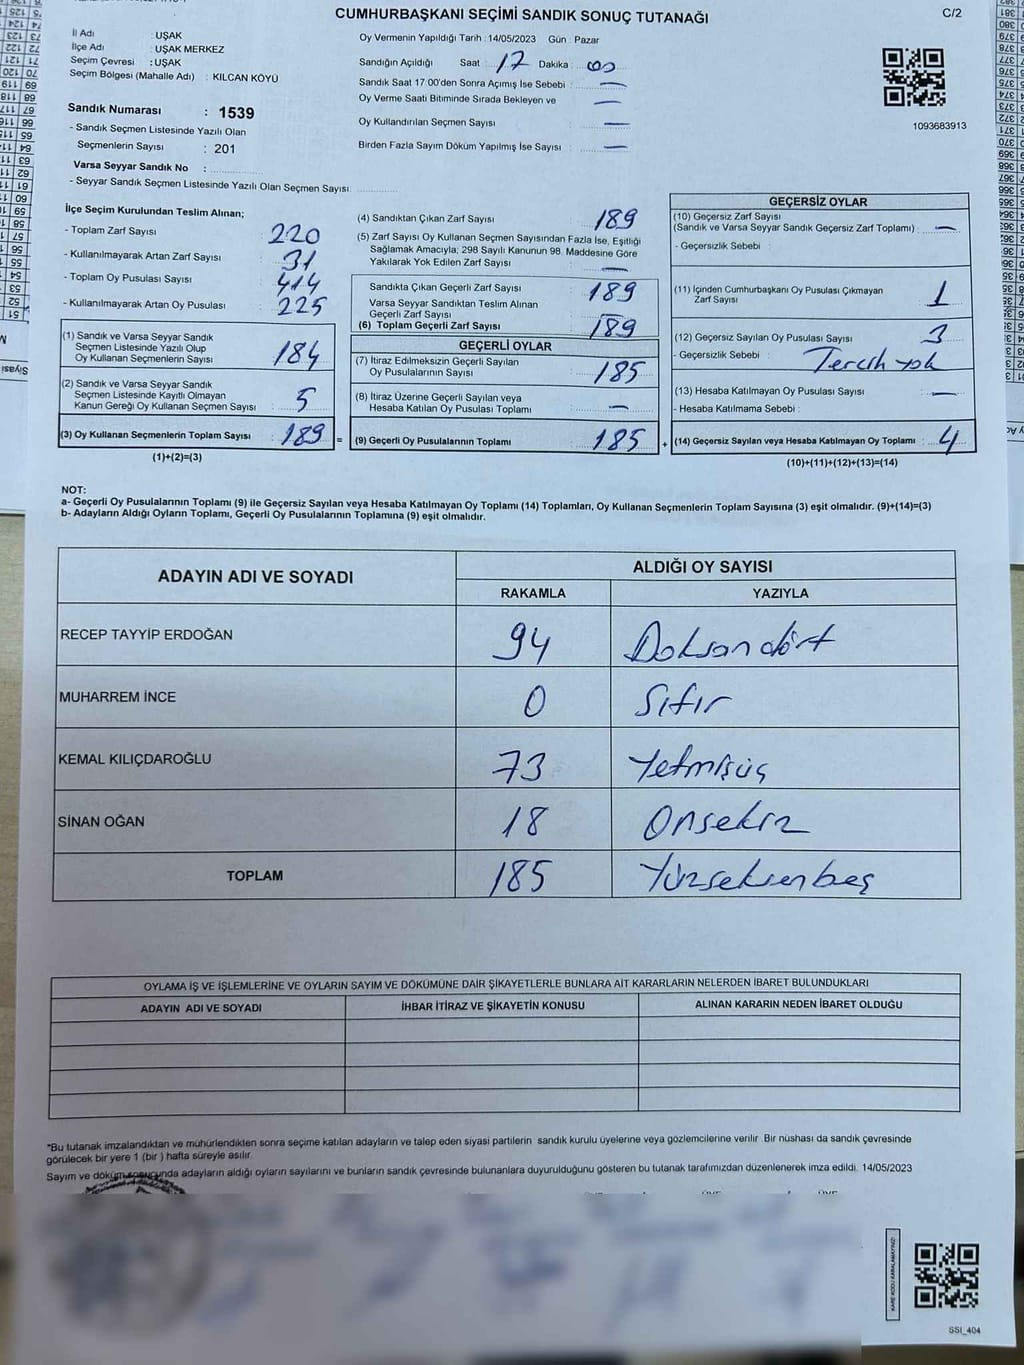 CUMHURBAŞKANI SEÇİMİ SANDIK SONUÇ TUTANAĞI
C/2
İl Adı : UŞAK
İlçe Adı : UŞAK MERKEZ
Seçim Çevresi : UŞAK
Seçim Bölgesi (Mahalle Adı) : KILCAN KÖYÜ
Sandık Numarası : 1539
- Sandık Seçmen Listesinde Yazılı Olan
Seçmenlerin Sayısı : 201
Varsa Seyyar Sandık No :
- Seyyar Sandık Seçmen Listesinde Yazılı Olan Seçmen Sayısı
Oy Vermenin Yapıldığı Tarih : 14/05/2023 Gün : Pazar
Sandığın Açıldığı Saat 17 Dakika 00
Sandık Saat 17:00'den Sonra Açımış İse Sebebi : —
Oy Verme Saati Bitiminde Sırada Bekleyen ve —
Oy Kullandırılan Seçmen Sayısı : —
Birden Fazla Sayım Döküm Yapılmış İse Sayısı : —
1093683913
İlçe Seçim Kurulundan Teslim Alınan;
- Toplam Zarf Sayısı : 220
- Kullanılmayarak Artan Zarf Sayısı : 31
- Toplam Oy Pusulası Sayısı : 414
- Kullanılmayarak Artan Oy Pusulası : 225
(1) Sandık ve Varsa Seyyar Sandık
Seçmen Listesinde Yazılı Olup
Oy Kullanan Seçmenlerin Sayısı : 184
(2) Sandık ve Varsa Seyyar Sandık
Seçmen Listesinde Kayıtlı Olmayan
Kanun Gereği Oy Kullanan Seçmen Sayısı : 5
(3) Oy Kullanan Seçmenlerin Toplam Sayısı : 189 =
(1)+(2)=(3)
(4) Sandıktan Çıkan Zarf Sayısı : 189
(5) Zarf Sayısı Oy Kullanan Seçmen Sayısından Fazla İse, Eşitliği
Sağlamak Amacıyla; 298 Sayılı Kanunun 98. Maddesine Göre
Yakılarak Yok Edilen Zarf Sayısı : —
Sandıkta Çıkan Geçerli Zarf Sayısı : 189
Varsa Seyyar Sandıktan Teslim Alınan
Geçerli Zarf Sayısı : —
(6) Toplam Geçerli Zarf Sayısı : 189
GEÇERLİ OYLAR
(7) İtiraz Edilmeksizin Geçerli Sayılan
Oy Pusulalarının Sayısı : 185
(8) İtiraz Üzerine Geçerli Sayılan veya
Hesaba Katılan Oy Pusulası Toplamı : —
(9) Geçerli Oy Pusulalarının Toplamı : 185 +
GEÇERSİZ OYLAR
(10) Geçersiz Zarf Sayısı
(Sandık ve Varsa Seyyar Sandık Geçersiz Zarf Toplamı) : —
- Geçersizlik Sebebi :
(11) İçinden Cumhurbaşkanı Oy Pusulası Çıkmayan
Zarf Sayısı : 1
(12) Geçersiz Sayılan Oy Pusulası Sayısı : 3
- Geçersizlik Sebebi : Tercih yok
(13) Hesaba Katılmayan Oy Pusulası Sayısı : —
- Hesaba Katılmama Sebebi :
(14) Geçersiz Sayılan veya Hesaba Katılmayan Oy Toplamı : 4
(10)+(11)+(12)+(13)=(14)
NOT:
a- Geçerli Oy Pusulalarının Toplamı (9) ile Geçersiz Sayılan veya Hesaba Katılmayan Oy Toplamı (14) Toplamları, Oy Kullanan Seçmenlerin Toplam Sayısına (3) eşit olmalıdır. (9)+(14)=(3)
b- Adayların Aldığı Oyların Toplamı, Geçerli Oy Pusulalarının Toplamına (9) eşit olmalıdır.
ADAYIN ADI VE SOYADI ALDIĞI OY SAYISI
RAKAMLA YAZIYLA
RECEP TAYYİP ERDOĞAN 94 Doksandört
MUHARREM İNCE 0 Sıfır
KEMAL KILIÇDAROĞLU 73 Yetmişüç
SİNAN OĞAN 18 Onsekiz
TOPLAM 185 Yüzseksenbeş
OYLAMA İŞ VE İŞLEMLERİNE VE OYLARIN SAYIM VE DÖKÜMÜNE DAİR ŞİKAYETLERLE BUNLARA AİT KARARLARIN NELERDEN İBARET BULUNDUKLARI
ADAYIN ADI VE SOYADI İHBAR İTİRAZ VE ŞİKAYETİN KONUSU ALINAN KARARIN NEDEN İBARET OLDUĞU
*Bu tutanak imzalandıktan ve mühürlendikten sonra seçime katılan adayların ve talep eden siyasi partilerin sandık kurulu üyelerine veya gözlemcilerine verilir. Bir nüshası da sandık çevresinde
görülecek bir yere 1 (bir ) hafta süreyle asılır.
Sayım ve döküm sonucunda adayların aldığı oyların sayılarını ve bunların sandık çevresinde bulunanlara duyurulduğunu gösteren bu tutanak tarafımızdan düzenlenerek imza edildi. 14/05/2023
KARE KODU KARALAMAYINIZ!
SSI_404